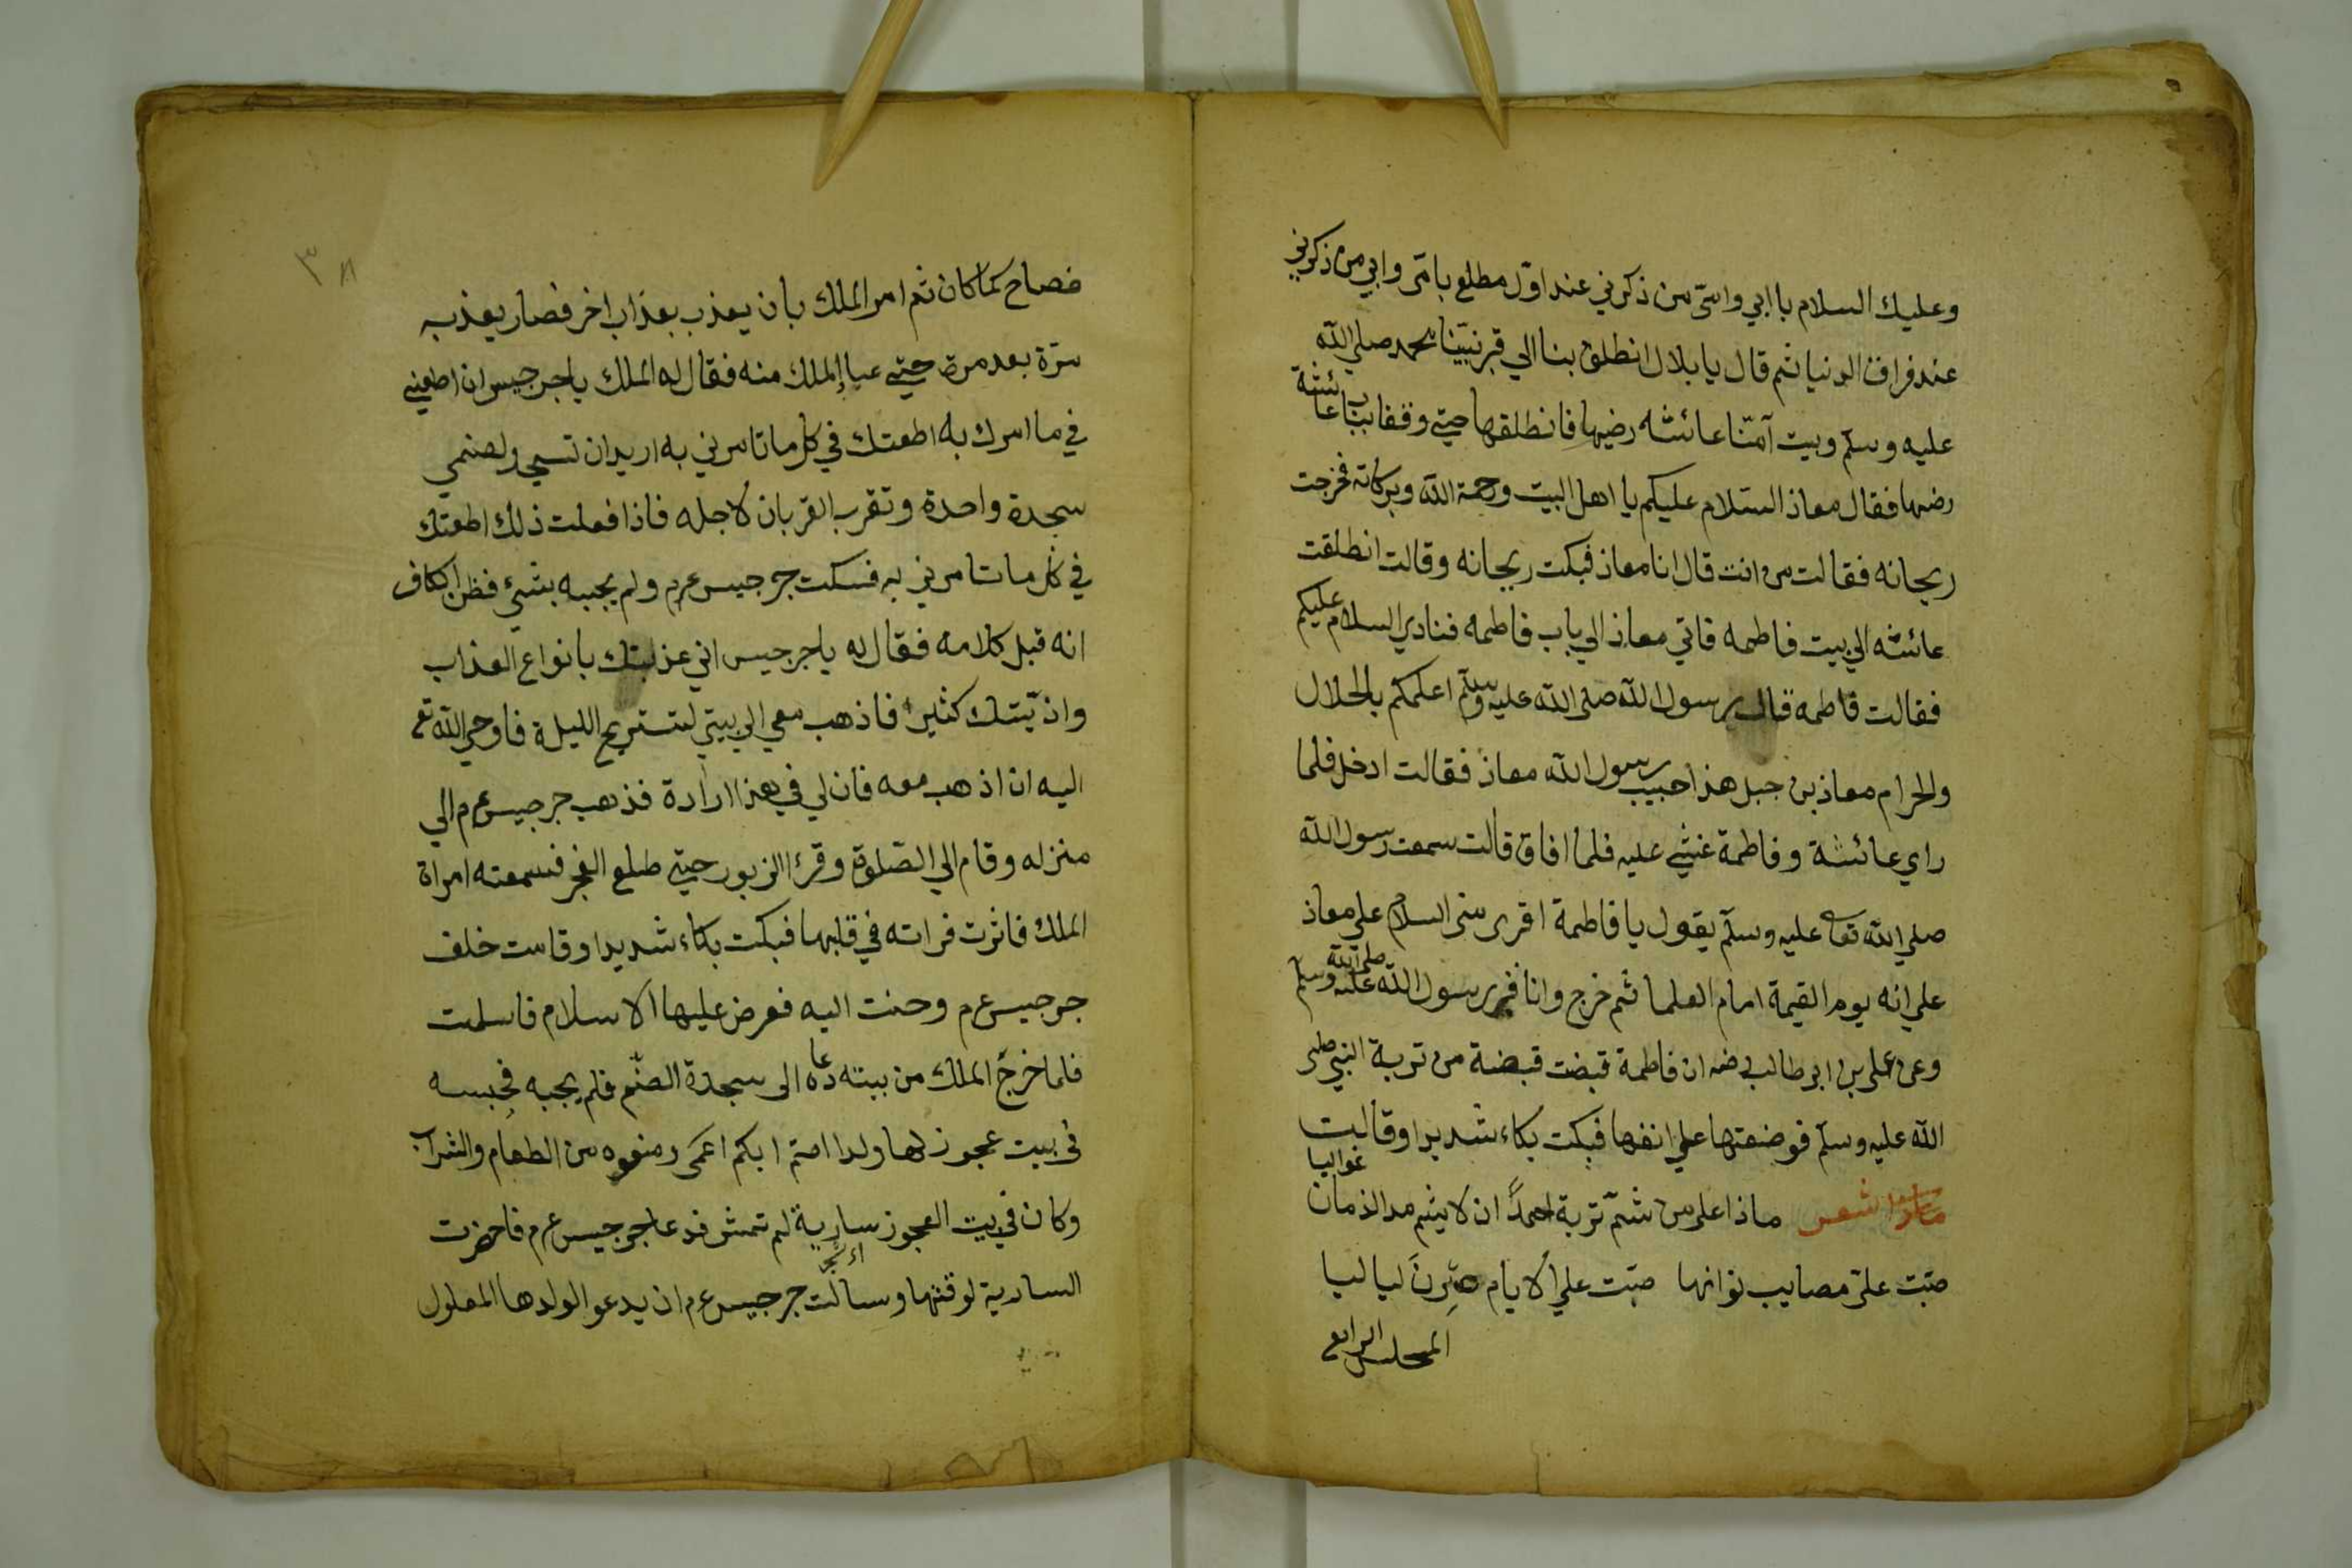 وعليك السلام بابي وامّى من ذكرني عند اوّل مطلع بامّى وابي من ذكرني
عند فراق الدنيا ثم قال يا بلال انطلق بنا الي قبر نبيّنا محمد صلي الله
عليه وسلّم وبيت آمّنا عائشه رضيها فانطلقها حتي وقفا بباب عائشة
رضيها فقال معاذ السّلام عليكم يا اهل البيت ورحمة الله وبركاته فخرجت
ريحانه فقالت من انت قال انا معاذ فبكت ريحانه وقالت انطلقت
عائشه الي بيت فاطمه فاتي معاذ الي باب فاطمه فنادي السلام عليكم
فقالت فاطمه قال رسول الله صلى الله عليه وسلّم اعلمكم بالحلال
والحرام معاذ بن جبل هذا حبيب رسول الله معاذ فقالت ادخل فلما
راي عائشة وفاطمة غشي عليه فلما افاق قالت سمعت رسول الله
صلي الله تعا عليه وسلّم يقول يا فاطمة اقرى منى السلام علي معاذ
علي انه يوم القيمة امام العلما ثم خرج وانا قبر رسول الله صلى الله عليه وسلم
وعن على بن ابى طالب رضه ان فاطمة قبضت قبضة من تربة النبي صلى
الله عليه وسلّم فوضعتها علي انفها فبكت بكاء شديدا وقالت
شعر ماذا على من شمّ تربة احمدًا ان لا يشم مد الذمان غواليا
صبّت علىّ مصايب لوانها صبّت علي الايام صِرنَ لياليا
المجلس الرابع
٣٨
فصاح كما كان ثم امر الملك بان يعذب بعذاب اخر فصار يعذبه
مرّة بعد مرة حتي عيا الملك منه فقال له الملك يا جرجيس ان اطعني
في ما امرك به اطعتك في كل ما تامرني به اريد ان تسجد لصنمي
سجدة واحدة وتقرب القربان لاجله فاذا فعلت ذلك اطعتك
في كل ما تامرني به فسكت جرجيس عرم ولم يجبه بشيء فظن الكاف
انه قبل كلامه فقال له يا جرجيس اني عذبتك بانواع العذاب
واذيّتك كثيرا فاذهب معي الي بيتي لتستريح الليلة فاوحي الله تع
اليه ان اذهب معه فان لي في هذا ارادة فذهب جرجيس عرم الي
منزله وقام الي الصّلوة وقرئ الزبور حتي طلع الفجر فسمعته امراة
الملك فاثرت قراته في قلبها فبكت بكاء شديدا وقامت خلف
جرجيس عرم وحنت اليه فعرض عليها الاسلام فاسلمت
فلما خرج الملك من بيته دعاه الى سجدة الصّنم فلم يجبه فحبسه
فى بيت عجوز لها ولدا اصم ابكم اعمى ومنعوه من الطعام والشراب
وكان في بيت العجوز سارية لم تمش فدعا جرجيس عرم فاحضرت
السارية لوقتها وسالت جرجيس عرم ان يدعو الولدها المعلول